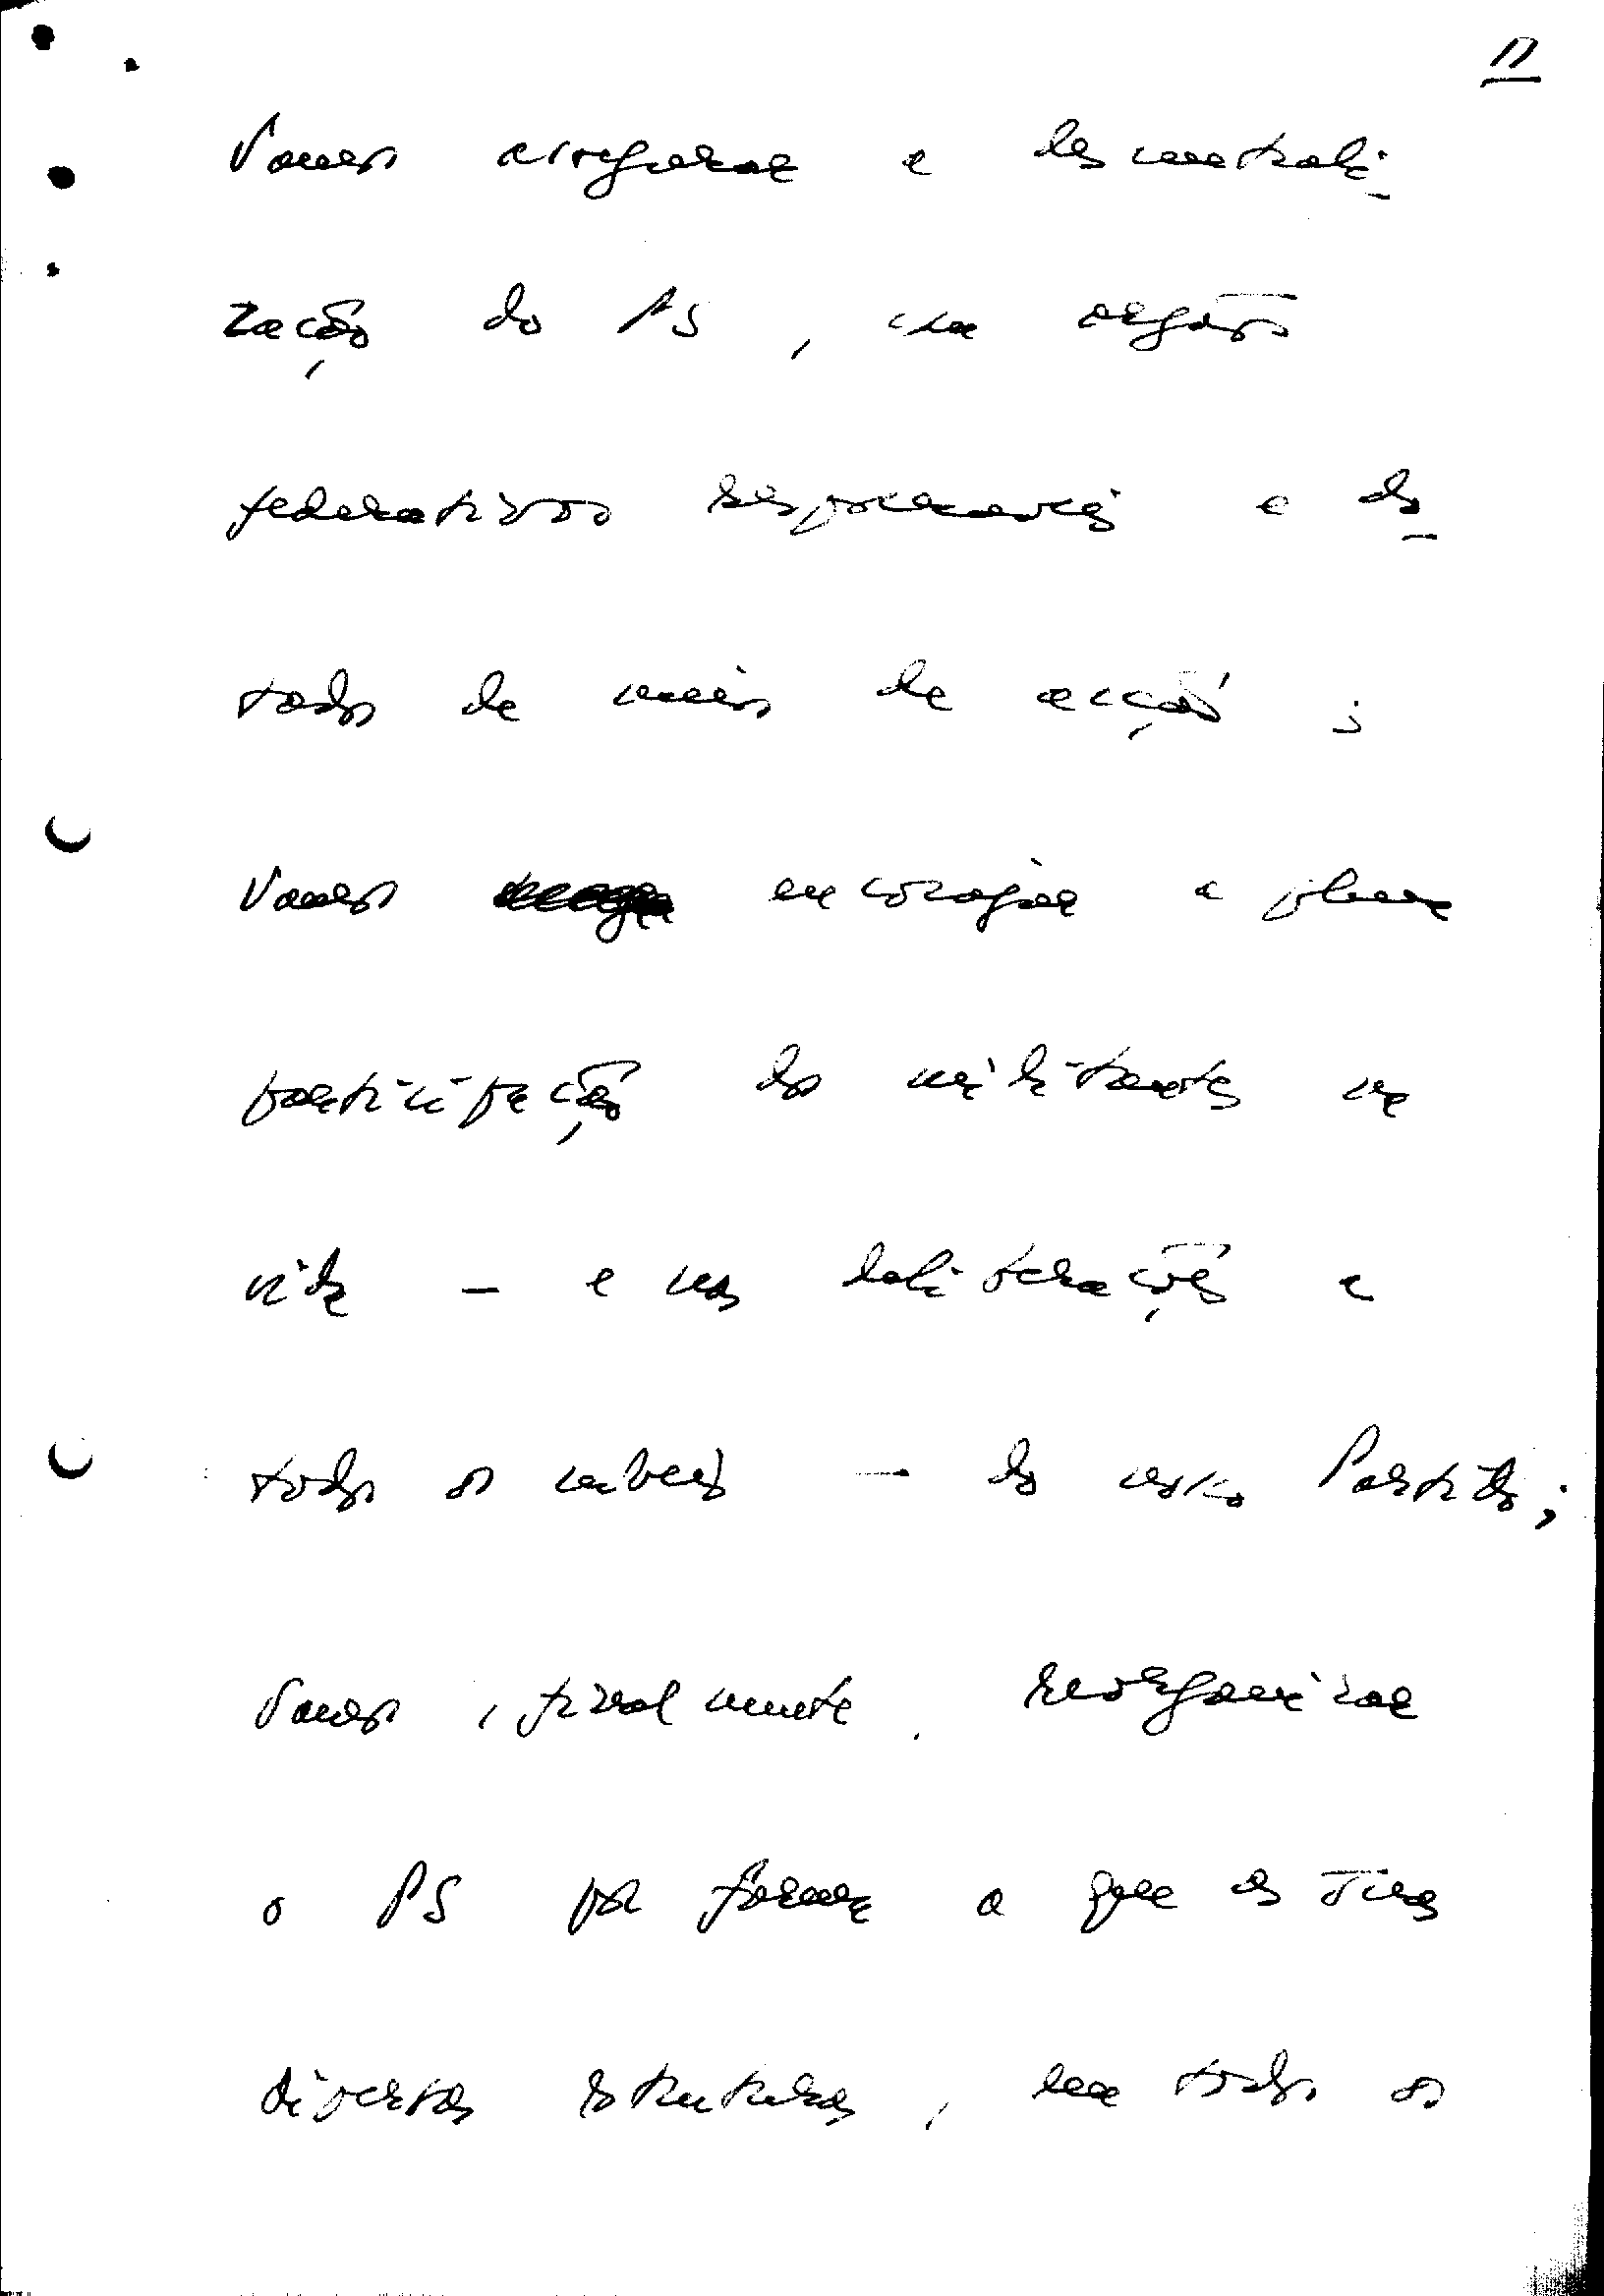 11
Vamos assegurar a descentrali-
zação do PS, com orgãos
federativos responsáveis e do-
tados de meios de acção;
Vamos encorajar a plena
participação dos militantes na
vida - e nas deliberações a
todos os níveis - do nosso Partido;
Vamos, finalmente, reorganizar
o PS por forma a que as suas
diversas estruturas, em todos os